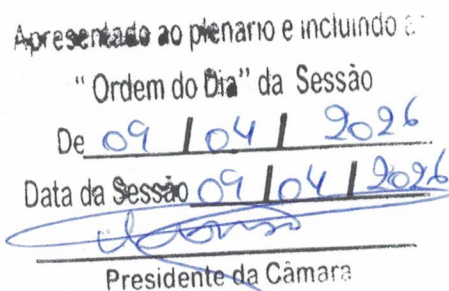 Apresentado ao plenario e incluindo a
“ Ordem do Dia” da Sessão
De 09 / 04 / 2026
Data da Sessão 09 / 04 / 2026
Presidente da Câmara